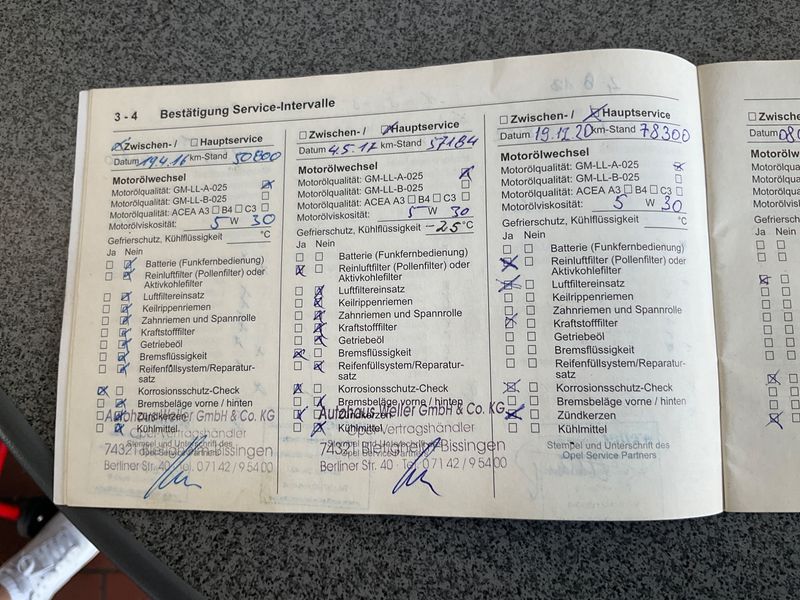 3 - 4 Bestätigung Service-Intervalle
Zwischen-/ Hauptservice
Datum 19.4.16 km-Stand 50800
Motorölwechsel
Motorölqualität: GM-LL-A-025
Motorölqualität: GM-LL-B-025
Motorölqualität: ACEA A3 B4 C3
Motorölviskosität: 5 W 30
Gefrierschutz, Kühlflüssigkeit °C
Ja Nein
Batterie (Funkfernbedienung)
Reinluftfilter (Pollenfilter) oder
Aktivkohlefilter
Luftfiltereinsatz
Keilrippenriemen
Zahnriemen und Spannrolle
Kraftstofffilter
Getriebeöl
Bremsflüssigkeit
Reifenfüllsystem/Reparatur-
satz
Korrosionsschutz-Check
Bremsbeläge vorne / hinten
Zündkerzen
Kühlmittel
Autohaus Weller GmbH & Co. KG
Opel Vertragshändler
74321 Bietigheim-Bissingen
Berliner Str. 40 · Tel. 0 71 42 / 9 54 00
Stempel und Unterschrift des
Opel Service Partners
Zwischen-/ Hauptservice
Datum 4.5.17 km-Stand 57184
Motorölwechsel
Motorölqualität: GM-LL-A-025
Motorölqualität: GM-LL-B-025
Motorölqualität: ACEA A3 B4 C3
Motorölviskosität: 5 W 30
Gefrierschutz, Kühlflüssigkeit -25 °C
Ja Nein
Batterie (Funkfernbedienung)
Reinluftfilter (Pollenfilter) oder
Aktivkohlefilter
Luftfiltereinsatz
Keilrippenriemen
Zahnriemen und Spannrolle
Kraftstofffilter
Getriebeöl
Bremsflüssigkeit
Reifenfüllsystem/Reparatur-
satz
Korrosionsschutz-Check
Bremsbeläge vorne / hinten
Zündkerzen
Kühlmittel
Autohaus Weller GmbH & Co. KG
Opel Vertragshändler
74321 Bietigheim-Bissingen
Berliner Str. 40 · Tel. 0 71 42 / 9 54 00
Stempel und Unterschrift des
Opel Service Partners
Zwischen-/ Hauptservice
Datum 19.11.20 km-Stand 78300
Motorölwechsel
Motorölqualität: GM-LL-A-025
Motorölqualität: GM-LL-B-025
Motorölqualität: ACEA A3 B4 C3
Motorölviskosität: 5 W 30
Gefrierschutz, Kühlflüssigkeit °C
Ja Nein
Batterie (Funkfernbedienung)
Reinluftfilter (Pollenfilter) oder
Aktivkohlefilter
Luftfiltereinsatz
Keilrippenriemen
Zahnriemen und Spannrolle
Kraftstofffilter
Getriebeöl
Bremsflüssigkeit
Reifenfüllsystem/Reparatur-
satz
Korrosionsschutz-Check
Bremsbeläge vorne / hinten
Zündkerzen
Kühlmittel
Stempel und Unterschrift des
Opel Service Partners
Zwischen-
Datum
Motorölw
Motorölqual
Motorölqual
Motorölqual
Motorölvisk
Gefrierschu
Ja Nein